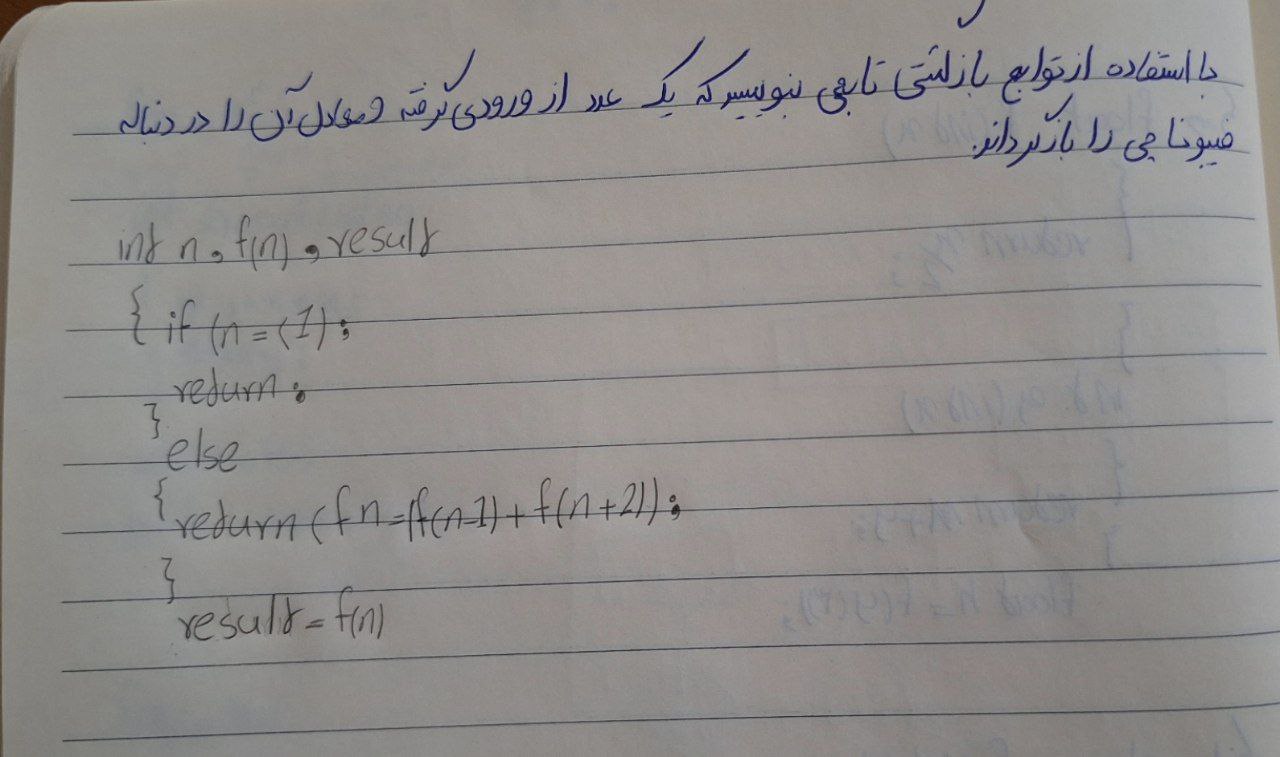 با استفاده از توابع بازگشتی تابعی بنویسید که یک عدد از ورودی گرفته و معادل آن را در دنباله
فیبوناچی را بازگرداند.
int n, f(n), result
{ if (n=<1);
return;
}
else
{ return(fn=(f(n-1)+f(n+2));
}
result=f(n)